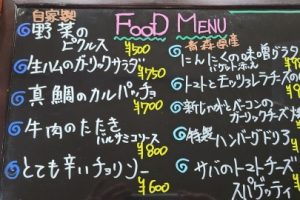 FOOD MENU
自家製
野菜の
ピクルス
¥500
生ハムのガーリックサラダ
¥750
真鯛のカルパッチョ
¥700
牛肉のたたき
バルサミコソース
¥800
とても辛いチョリソー
¥600
青森県産
にんにくの味噌グラタ
バゲット添え
トマトとモッツァレラチーズの
新じゃがとベーコンの
ガーリックチーズ
特製 ハンバーグドリア
サバのトマトチーズ
スパゲッティ